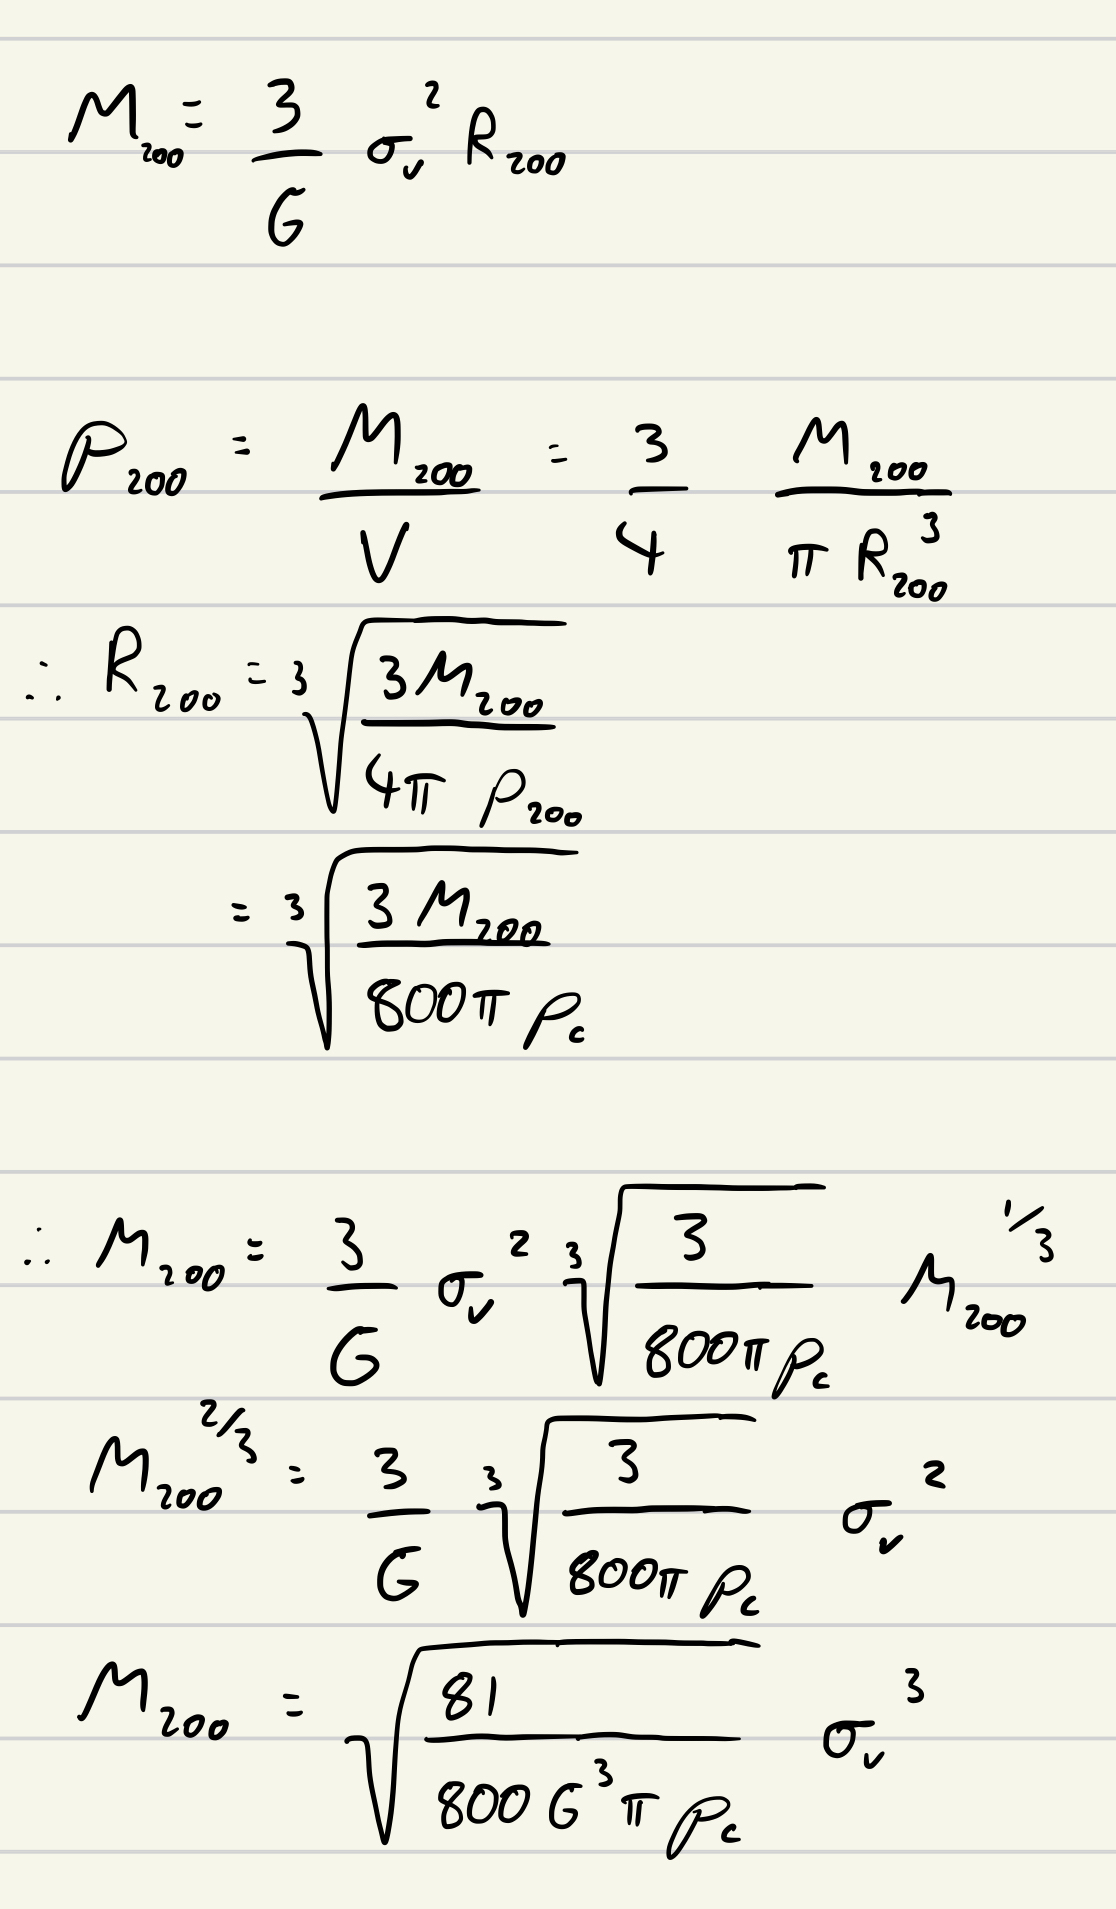 M₂₀₀ = 3/G σᵥ² R₂₀₀
ρ₂₀₀ = M₂₀₀/V = 3/4 M₂₀₀/(π R₂₀₀³)
∴ R₂₀₀ = ∛(3M₂₀₀/(4π ρ₂₀₀))
= ∛(3 M₂₀₀/(800π ρ_c))
∴ M₂₀₀ = 3/G σᵥ² ∛(3/(800π ρ_c)) M₂₀₀^(1/3)
M₂₀₀^(2/3) = 3/G ∛(3/(800π ρ_c)) σᵥ²
M₂₀₀ = √(81/(800 G³ π ρ_c)) σᵥ³